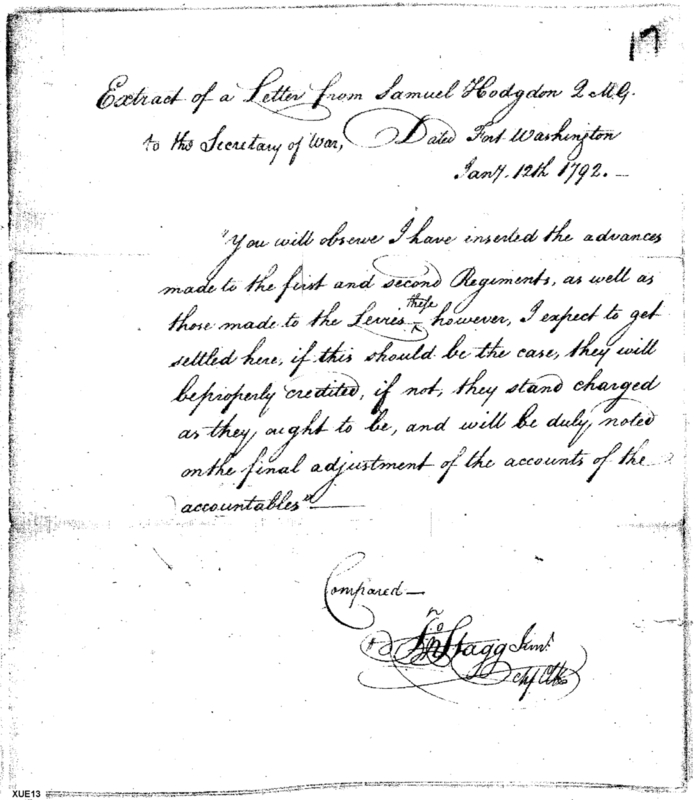 17
Extract of a Letter from Samuel Hodgdon Q M. G.
to the Secretary of War, Dated Fort Washington
Jany. 12th 1792. —
"You will observe I have inserted the advances
made to the first and second Regiments, as well as
those made to the Levies ^ these however, I expect to get
settled here, if this should be the case, they will
be properly credited, if not, they stand charged
as they ought to be, and will be duly noted
on the final adjustment of the accounts of the
accountables" —
Compared —
Jno Stagg Junr.
chf Clk
XUE13